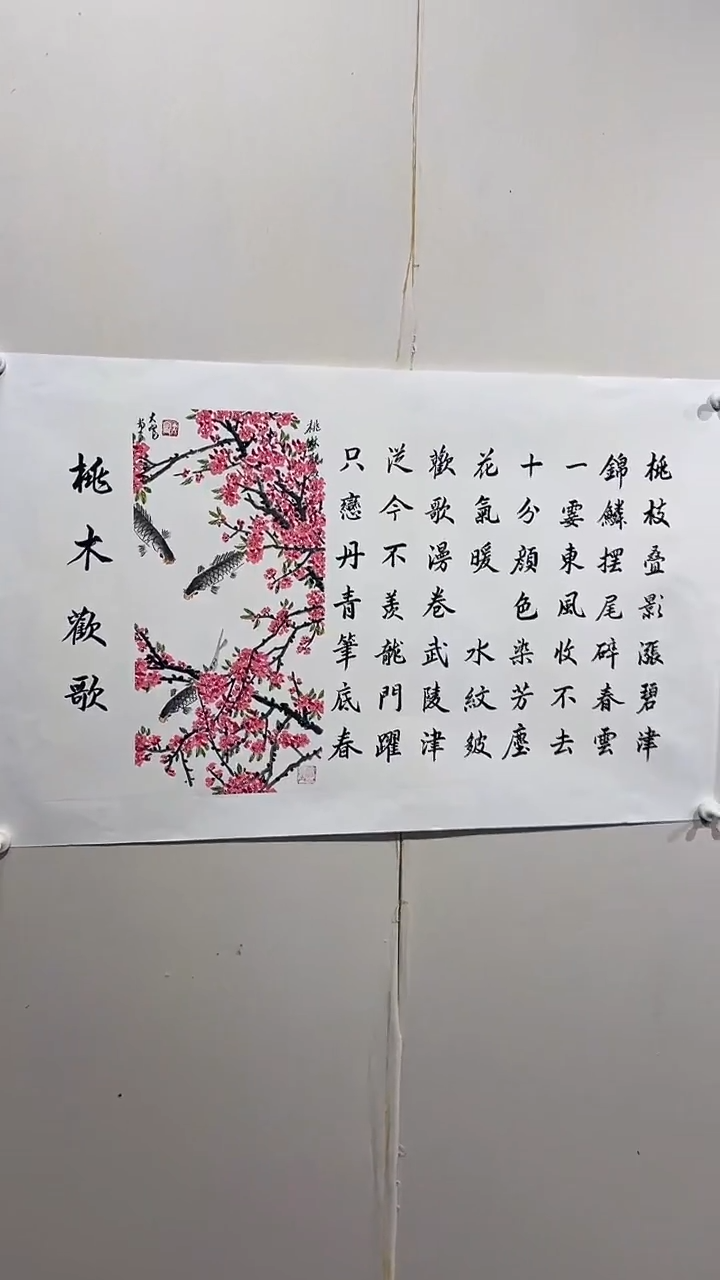 桃枝叠影漲碧津
錦鱗摆尾碎春雲
一霎東風收不去
十分顔色染芳塵
花氣暖 水紋皴
歡歌漫卷武陵津
從今不羨龍門躍
只戀丹青筆底春
桃木歡歌